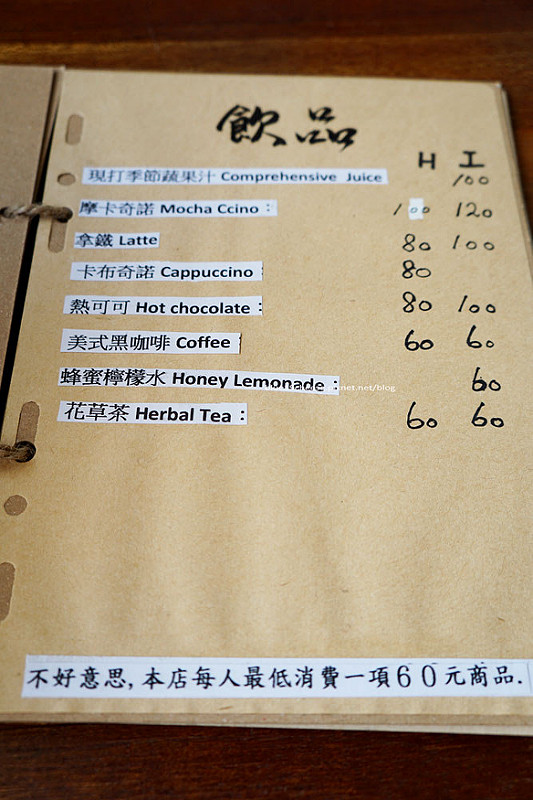 飲品
H 工
現打季節蔬果汁 Comprehensive Juice 100
摩卡奇諾 Mocha Ccino： 100 120
拿鐵 Latte 80 100
卡布奇諾 Cappuccino 80
熱可可 Hot chocolate： 80 100
美式黑咖啡 Coffee 60 60
蜂蜜檸檬水 Honey Lemonade： 60
花草茶 Herbal Tea： 60 60
不好意思,本店每人最低消費一項60元商品.